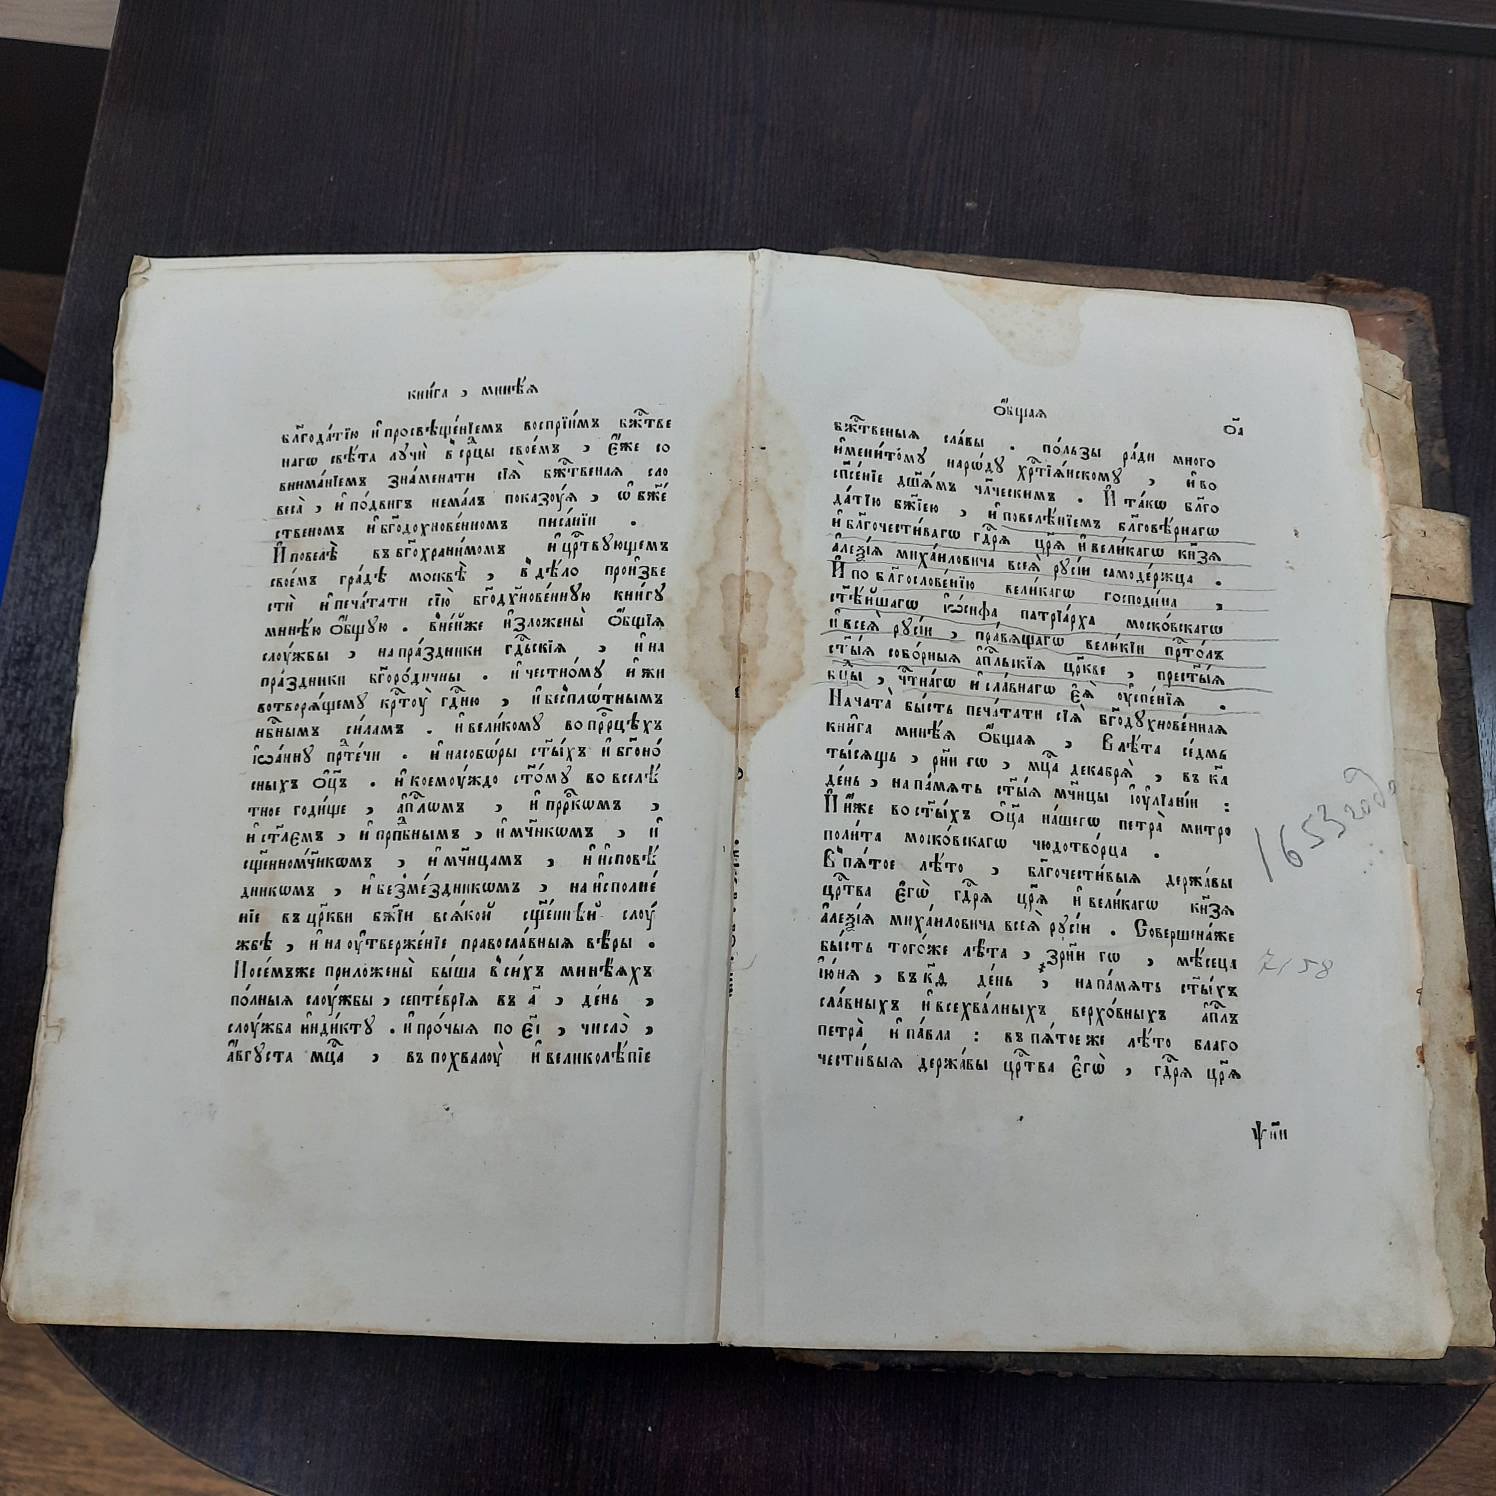 книга , минѣѧ
бл҃года́тїю и҆ просвѣще́нїемъ воспрїи́мъ бж҃тве
нагѡ свѣ́та лучѝ в̾ср҃цы свое́мъ , є҆́же со
внима́нїемъ зна́менати сїѧ̀ бж҃твеная сло
веса̀ , и҆ по́двигъ нема́лъ показоу́ѧ , ѡ҆ бж҃е́
ственомъ и҆ бг҃одохнове́нномъ писа́нїи .
И҆ повелѣ̀ въ бг҃охрани́момъ и҆ цр҃твующемъ
свое́мъ гра́дѣ москвѣ̀ , в̾дѣ́ло произве
стѝ и҆ печа́тати сїю̀ бг҃одꙋхнове́нную книгу
минѣ́ю О҆́бщую . в̾не́йже и҆зложены̀ О҆́бщїѧ
слоу́жбы , на пра́здники гд҃ьскїѧ , и҆ на
пра́здники бг҃оро́дичны . и҆ честно́му и҆ жи
вотворѧ́щему кр҃тоу̀ гд҃ню , и҆ бесплѡ́тнымъ
нб҃нымъ си́ламъ . и҆ вели́кому во прⷪ҇рцѣхъ
і҆ѡа́нну пр҃тече́чи . и҆ на собѡ́ры ст҃ы́хъ и҆ бг҃оно́
сныхъ О҆ц҃ъ . и҆ коемоу́ждо ст҃о́му во вселѣ́
тное годи́ще , а҆пⷭ҇лѡмъ , и҆ прⷪ҇ркѡмъ ,
и҆ ст҃лемъ , и҆ прпⷣбнымъ , и҆ мч҃икѡмъ , и҆
сщ҃енномч҃икѡмъ , и҆ мч҃ицамъ , и҆ и҆сповѣ́
дникѡмъ , и҆ безме́здникѡмъ , на и҆сполне́
нїе въ цр҃кви бж҃їи всѧ́кой сщ҃е́ннѣй слоу́
жбѣ , и҆ на оу҆твержде́нїе правосла́вныѧ вѣ́ры .
Посе́мъже приложены̀ бы́ша в̾си́хъ минѣ́ѧхъ
по́лныѧ слоу́жбы , септе́врїѧ въ а҃ , де́нь ,
слоу́жба и҆нди́кту . и҆ про́чыѧ по є҃і , число̀ ,
а҆́вгуста мцⷭ҇а , въ похвалоу̀ и҆ великолѣ́пїе
О҆́бщаѧ
о҃а
бж҃твеныѧ сла́вы . по́льзы ра́ди много
и҆мени́тому наро́ду хрⷭ҇тїѧ́нскому , и҆ во
сп҃се́нїе дш҃а́мъ чл҃ческимъ . И҆ та́кѡ бл҃го
да́тїю бж҃їею , и҆ повелѣ́нїемъ бл҃говѣ́рнагѡ
и҆ бл҃гочести́вагѡ гдⷭ҇рѧ цр҃ѧ̀ и҆ вели́кагѡ кн҃зѧ
а҆леѯі́ѧ миха́иловича всеѧ̀ русі́и самоде́ржца .
И҆ по бл҃гослове́нїю вели́кагѡ господи́на ,
ст҃ѣ́йшагѡ і҆ѡ́сифа патрїа́рха моско́вскагѡ
и҆ всеѧ̀ русі́и , пра́вѧщагѡ вели́кїи прⷭ҇то́лъ
ст҃ы́ѧ собо́рныѧ а҆пⷭ҇льскїѧ цр҃кве , прест҃ы́ѧ
бц҃ы , чⷭ҇тнагѡ и҆ сла́внагѡ є҆ѧ̀ оу҆спе́нїѧ .
Нача́та бы́сть печа́тати сїѧ̀ бг҃одꙋхнове́нная
книга минѣ́ѧ О҆́бщая , В лѣ́та се́дмь
ты́сѧщь , рн҃и гѡ , мцⷭ҇а декабрѧ̀ , въ к҃а
де́нь , на па́мѧть ст҃ы́ѧ мч҃ицы і҆оулїа́нїи :
И҆ и҆́же во ст҃ы́хъ О҆ц҃а на́шегѡ петра̀ митро
поли́та моско́вскагѡ чюдотво́рца .
В̾пѧ́тое лѣ́то , бл҃гочести́выѧ держа́вы
црⷭ҇тва є҆гѡ̀ гдⷭ҇рѧ цр҃ѧ̀ и҆ вели́кагѡ кн҃зѧ
а҆леѯі́ѧ миха́иловича всеѧ̀ русі́и . Соверше́наже
бы́сть того́же лѣ́та , ҂зрн҃и гѡ , мѣ́сеца
і҆ю́нѧ , въ к҃д де́нь , на па́мѧть ст҃ы́хъ
сла́вныхъ и҆ всехва́лныхъ верхо́вныхъ а҆пⷭ҇лъ
петра̀ и҆ па́вла : въ пѧ́тоеже лѣ́то благо
чести́выѧ держа́вы црⷭ҇тва є҆гѡ̀ , гдⷭ҇рѧ цр҃ѧ̀
ѱ҃пи
1653 года
7158